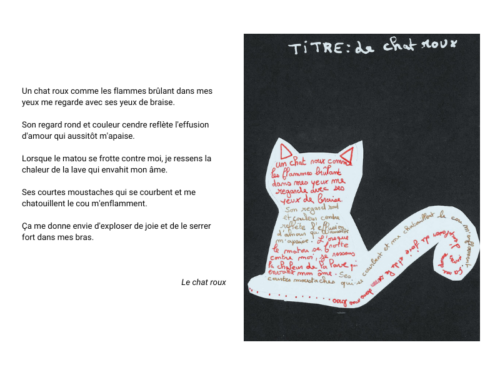 Un chat roux comme les flammes brûlant dans mes
yeux me regarde avec ses yeux de braise.
Son regard rond et couleur cendre reflète l'effusion
d'amour qui aussitôt m'apaise.
Lorsque le matou se frotte contre moi, je ressens la
chaleur de la lave qui envahit mon âme.
Ses courtes moustaches qui se courbent et me
chatouillent le cou m'enflamment.
Ça me donne envie d'exploser de joie et de le serrer
fort dans mes bras.
Le chat roux
TITRE: de chat roux
un chat roux comme
les flammes brûlant
dans mes yeux me
regarde avec ses
yeux de braise
Son regard rond
et couleur cendre
reflète l'effusion
d'amour qui aussitôt
m'apaise. Lorsque
le matou se frotte
contre moi, je ressens
la chaleur de la lave qui
envahit mon âme. Ses
courtes moustaches qui se courbent et me chatouillent le cou m'enflamment